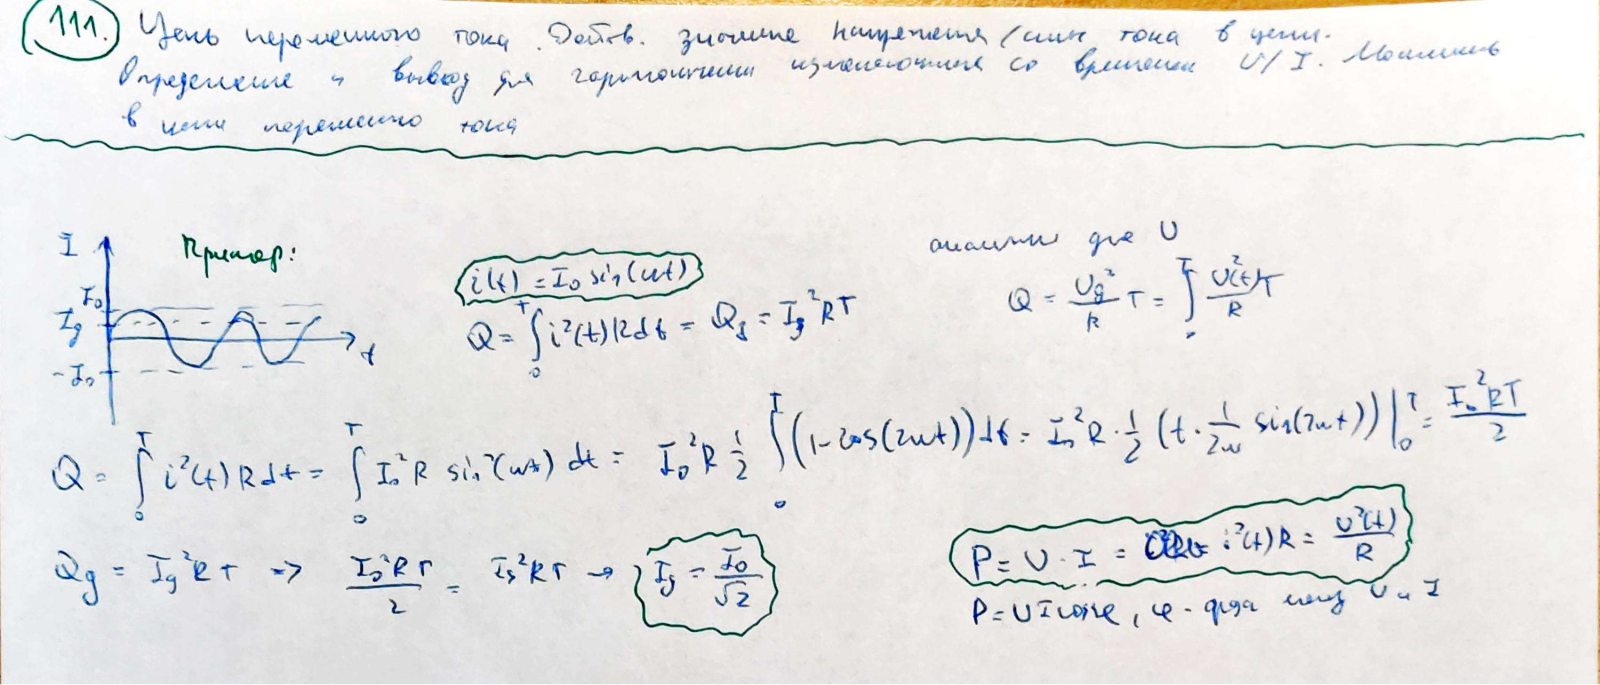 111. Цепь переменного тока. Действ. значение напряжения/силы тока в цепи.
Определение и вывод для гармонически изменяющихся со временем U/I. Мощность
в цепи переменного тока
Пример:
I
I₀
I_g
-I₀
t
i(t) = I₀ sin(ωt)
Q = ∫₀ᵀ i²(t)Rdt = Q_g = I_g²RT
аналогично для U
Q = U_g²/R T = ∫₀ᵀ U²(t)/R T
Q = ∫₀ᵀ i²(t)Rdt = ∫₀ᵀ I₀²R sin²(ωt) dt = I₀²R 1/2 ∫₀ᵀ (1-cos(2ωt))dt = I₀²R · 1/2 (t · 1/2ω sin(2ωt))|₀ᵀ = I₀²RT/2
Q_g = I_g²RT => I₀²RT/2 = I_g²RT → I_g = I₀/√2
P = U · I = i²(t)R = U²(t)/R
P = UIcosφ, φ - фаза между U и I